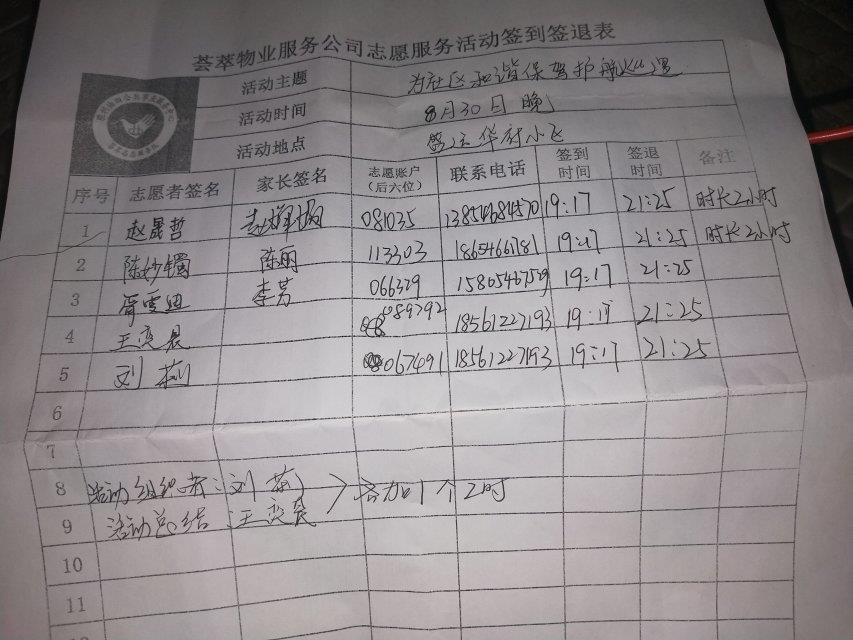 荟萃物业服务公司志愿服务活动签到签退表
活动主题 为社区和谐保驾护航
活动时间 8月30日晚
活动地点 华府小区
序号 志愿者签名 家长签名 志愿账户（后六位） 联系电话 签到时间 签退时间 备注
1 赵晟哲 081035 13854684570 19:17 21:25 时长2小时
2 陈妙镯 陈丽 113303 18654661781 19:17 21:25 时长2小时
3 胥雲迪 李芳 066329 15865467529 19:17 21:25
4 王奕晨 089792 18561227193 19:17 21:25
5 刘莉 067491 18561227193 19:17 21:25
6
7
8 活动组织者：刘莉 > 各加1个小时
9 活动总结：王奕晨
10
11